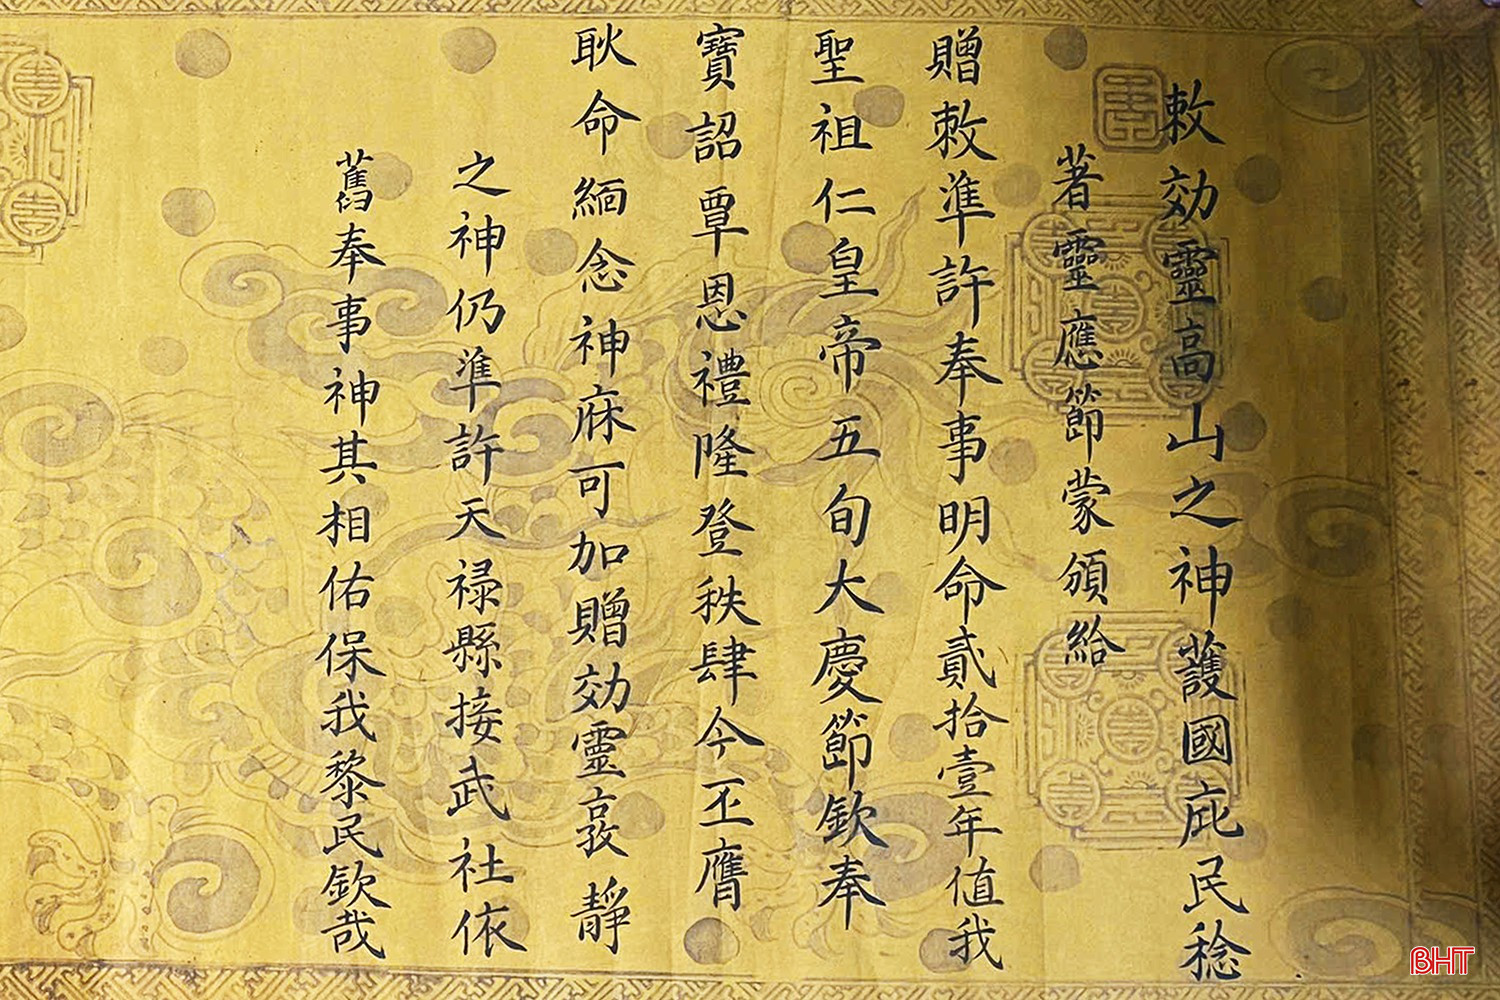 敕効靈高山之神護國庇民稔
著靈應節蒙頒給
贈敕準許奉事明命貳拾壹年值我
聖祖仁皇帝五旬大慶節欽奉
寶詔覃恩禮隆登秩肆今丕膺
耿命緬念神庥可加贈効靈敦靜
之神仍準許天祿縣接武社依
舊奉事神其相佑保我黎民欽哉
BHT